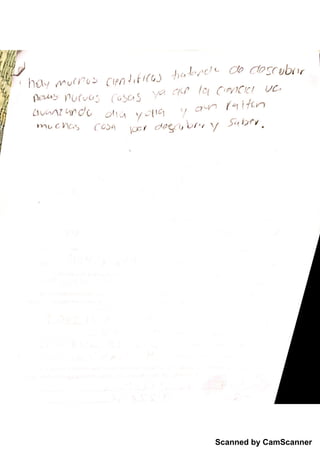 hay muchos científicos tratando de descubrir
nuevas cosas ya que la ciencia va
avanzando día y día y aun faltan
muchas cosa por descubrir y saber.
Scanned by CamScanner